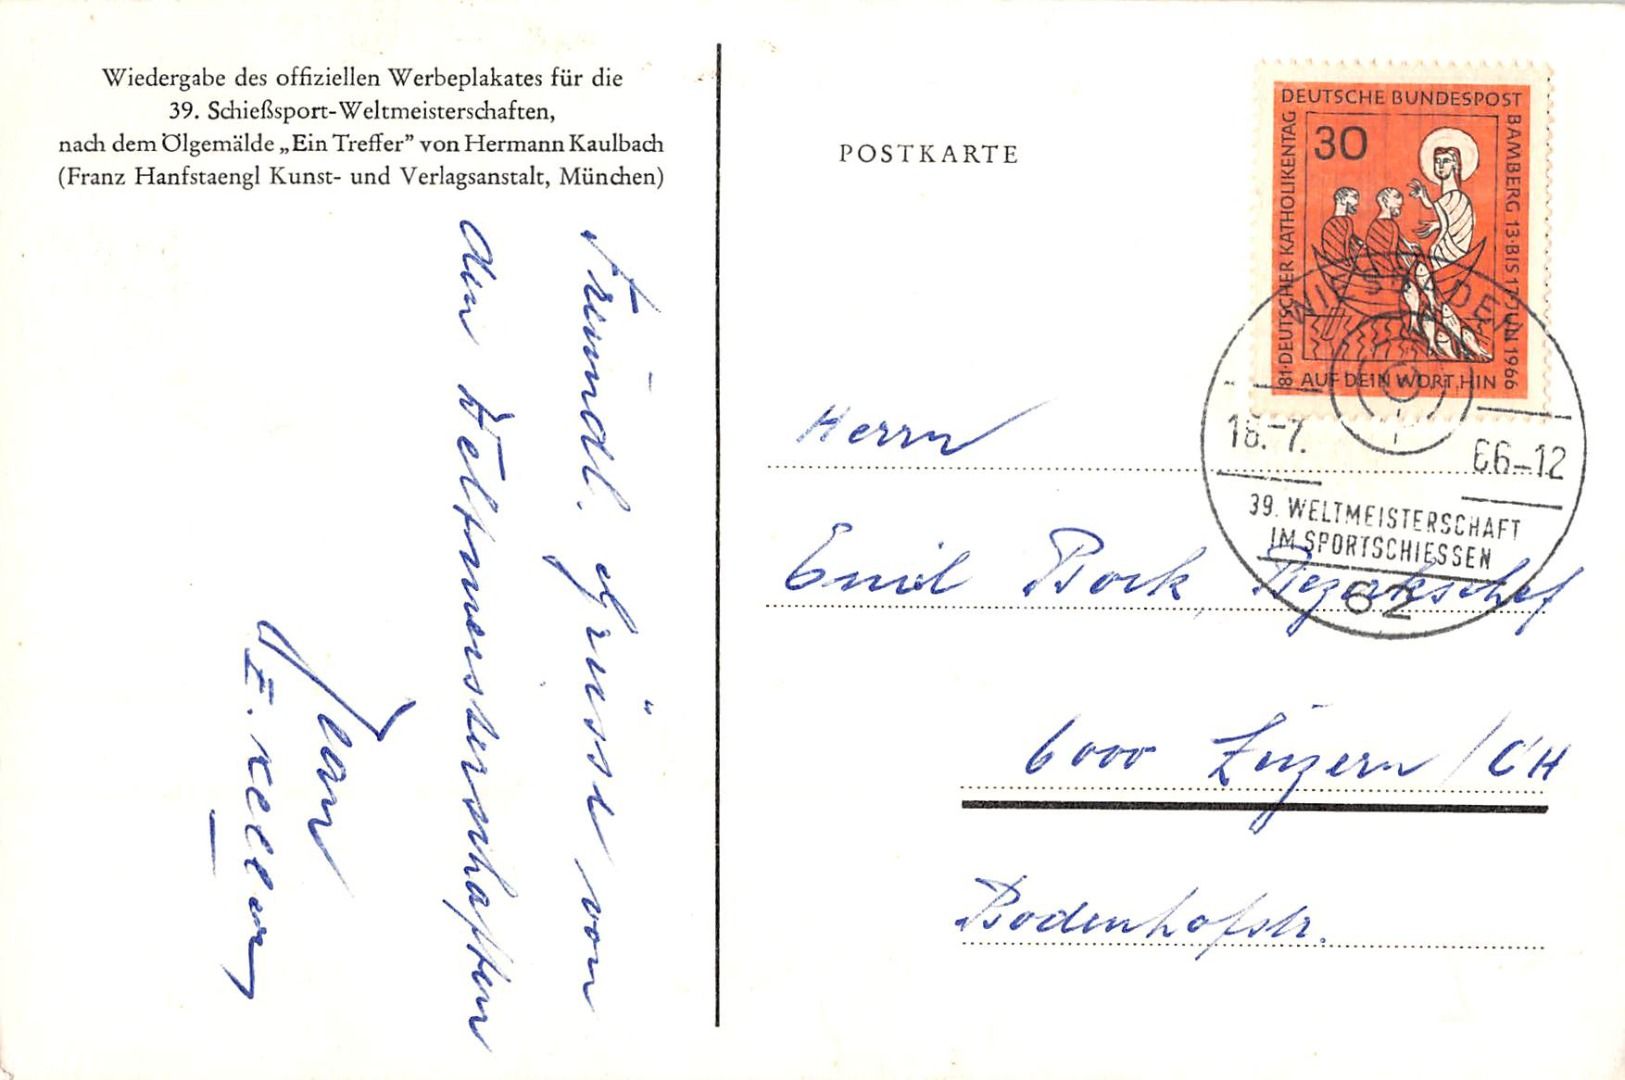 Wiedergabe des offiziellen Werbeplakates für die
39. Schießsport-Weltmeisterschaften,
nach dem Ölgemälde „Ein Treffer” von Hermann Kaulbach
(Franz Hanfstaengl Kunst- und Verlagsanstalt, München)
Freundl. Grüsse von
den Weltmeisterschaften
E. Keller
POSTKARTE
DEUTSCHE BUNDESPOST
30
81. DEUTSCHER KATHOLIKENTAG
BAMBERG 13. BIS 17. JULI 1966
AUF DEIN WORT HIN
WIESBADEN
18.-7. 66-12
39. WELTMEISTERSCHAFT
IM SPORTSCHIESSEN
62
Herrn
Emil Bock, Bezirkschef
6000 Luzern / CH
Bodenhofstr.